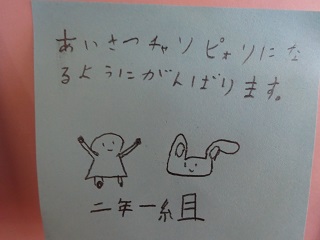 あいさつチャリピォリにな
るようにがんばります。
二年一組